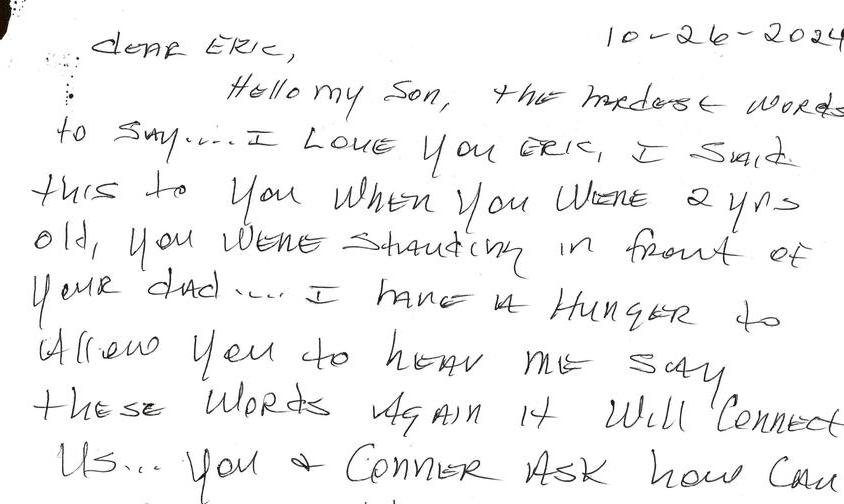 10-26-2024
Dear Eric,
Hello my Son, the hardest words
to say..... I Love you Eric, I said
this to you when you were 2 yrs
old, you were standing in front of
your dad.... I have a Hunger to
Allow you to hear me say
these words again it will connect
us... you & Conner ask how can